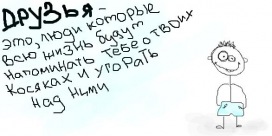 ДРУЗЬЯ-
это, люди которые
всю жизнь будут
напоминать тебе о твоих
косяках и угорать
над ними